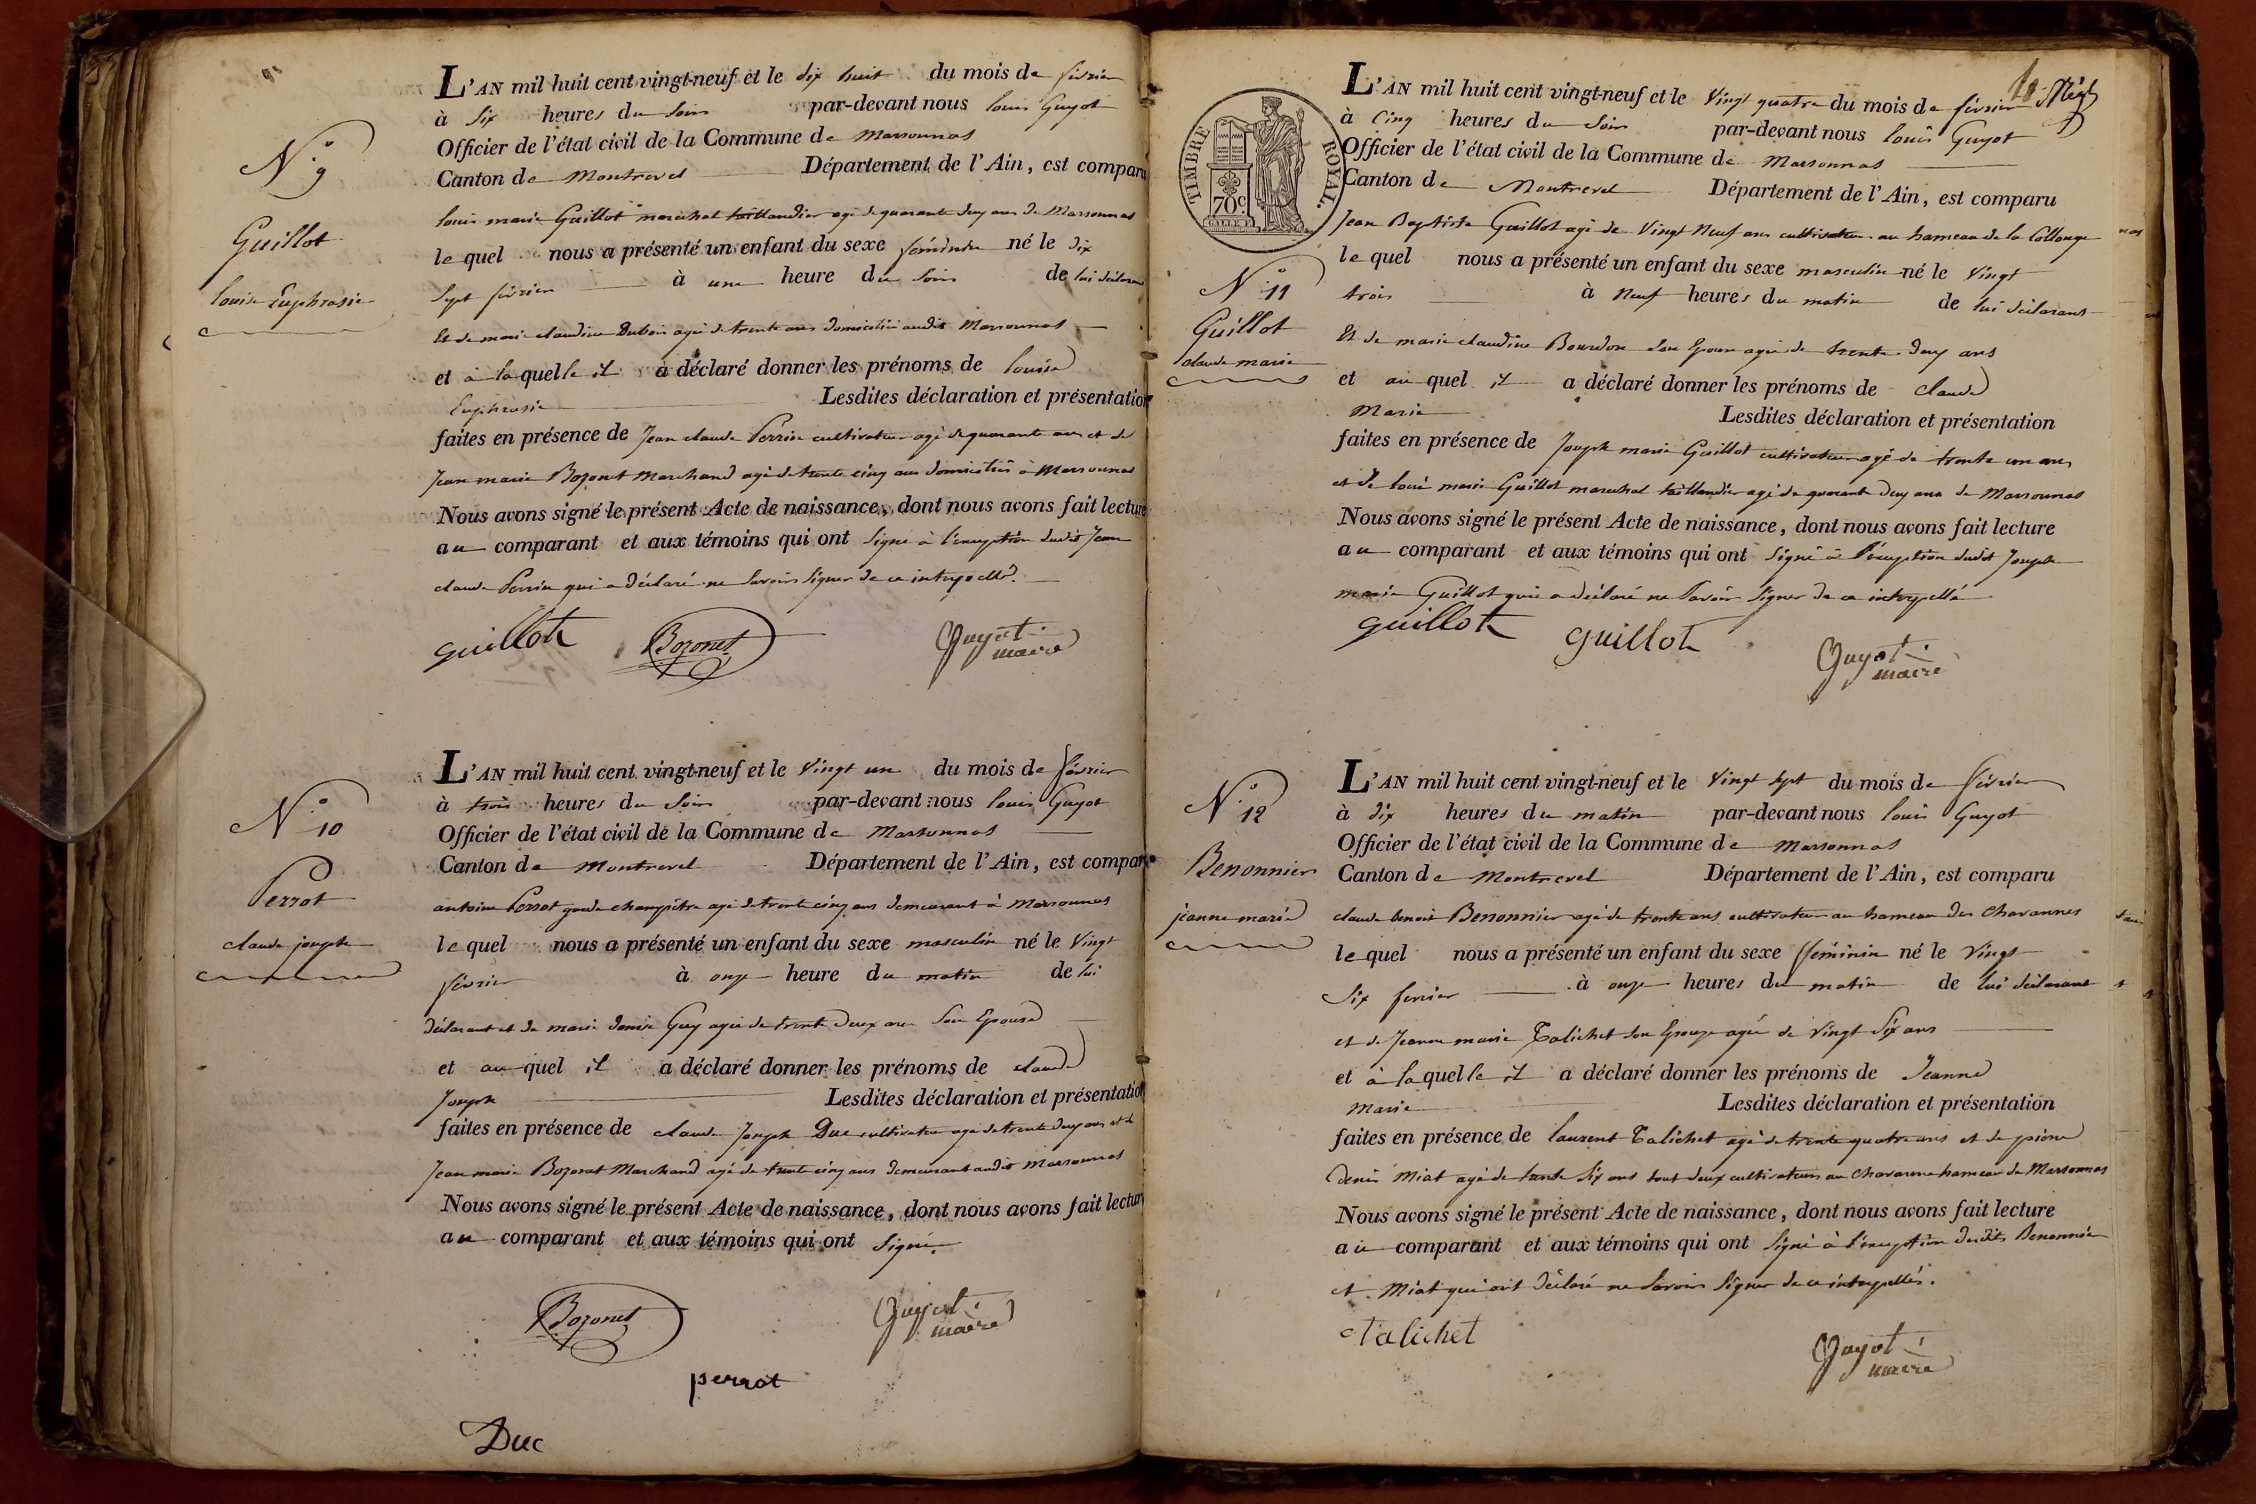 N.º 9
Guillot
louise Euphrasie
L'AN mil huit cent vingt-neuf et le dix huit du mois de février
à six heures du soir par-devant nous louis Guyot
Officier de l'état civil de la Commune de Marsonnas
Canton de Montrevel Département de l'Ain, est comparu
louis marie Guillot marechal taillandier agé de quarante deux ans de Marsonnas
lequel nous a présenté un enfant du sexe féminin né le dix
sept février à une heure du soir de lui déclarant
Et de marie claudine Dubois agée de trente ans domiciliée audit Marsonnas
et à laquelle il a déclaré donner les prénoms de louise
Euphrasie Lesdites déclaration et présentation
faites en présence de Jean claude Perrin cultivateur agé de quarante ans et de
Jean marie Bozonet Marchand agé de trente cinq ans domiciliés à Marsonnas
Nous avons signé le présent Acte de naissance, dont nous avons fait lecture
au comparant et aux témoins qui ont signé à l'exception dudit Jean
claude Perrin qui a déclaré ne savoir signer de ce interpellé.
guillot Bozonet Guyot
maire
N.º 10
Perrot
claude joseph
L'AN mil huit cent vingt-neuf et le vingt un du mois de février
à trois heures du soir par-devant nous louis Guyot
Officier de l'état civil de la Commune de Marsonnas
Canton de Montrevel Département de l'Ain, est compar
antoine Perrot garde champêtre agé de trente cinq ans demeurant à Marsonnas
lequel nous a présenté un enfant du sexe masculin né le vingt
février à onze heure du matin de lui
déclarant et de marie denise Guy agée de trente deux ans son Epouse
et auquel il a déclaré donner les prénoms de claude
Joseph Lesdites déclaration et présentation
faites en présence de claude Joseph Duc cultivateur agé de trente deux ans et de
Jean marie Bozonet Marchand agé de trente cinq ans demeurant audit Marsonnas
Nous avons signé le présent Acte de naissance, dont nous avons fait lecture
au comparant et aux témoins qui ont signé.
Bozonet Guyot
maire
perrot
Duc
TIMBRE ROYAL.
70c
N.º 11
Guillot
claude marie
L'AN mil huit cent vingt-neuf et le vingt quatre du mois de février
à cinq heures du soir par-devant nous louis Guyot
Officier de l'état civil de la Commune de Marsonnas
Canton de Montrevel Département de l'Ain, est comparu
Jean Baptiste Guillot agé de vingt neuf ans cultivateur au hameau de la Collonge
lequel nous a présenté un enfant du sexe masculin né le vingt
trois à neuf heures du matin de lui déclarant
Et de marie claudine Bourdon son Epouse agée de trente deux ans
et auquel il a déclaré donner les prénoms de claude
Marie Lesdites déclaration et présentation
faites en présence de Joseph marie Guillot cultivateur agé de trente un ans
et de louis marie Guillot marechal taillandier agé de quarante deux ans de Marsonnas
Nous avons signé le présent Acte de naissance, dont nous avons fait lecture
au comparant et aux témoins qui ont signé à l'exception dudit Joseph
marie Guillot qui a déclaré ne savoir signer de ce interpellé
guillot guillot Guyot
maire
N.º 12
Benonnier
jeanne marie
L'AN mil huit cent vingt-neuf et le vingt sept du mois de février
à dix heures du matin par-devant nous louis Guyot
Officier de l'état civil de la Commune de Marsonnas
Canton de Montrevel Département de l'Ain, est comparu
claude benoit Benonnier agé de trente ans cultivateur au hameau des Chavannes
lequel nous a présenté un enfant du sexe féminin né le vingt
six fevrier à onze heures du matin de lui déclarant
et de Jeanne marie Talichet son Epouse agée de vingt six ans
et à laquelle il a déclaré donner les prénoms de Jeanne
Marie Lesdites déclaration et présentation
faites en présence de laurent Talichet agé de trente quatre ans et de pierre
denis Miat agé de trente six ans tout deux cultivateurs au Chavanne hameau de Marsonnas
Nous avons signé le présent Acte de naissance, dont nous avons fait lecture
au comparant et aux témoins qui ont signé à l'exception desdits Benonnier
et Miat qui ont déclaré ne savoir signer de ce interpellés.
talichet Guyot
maire